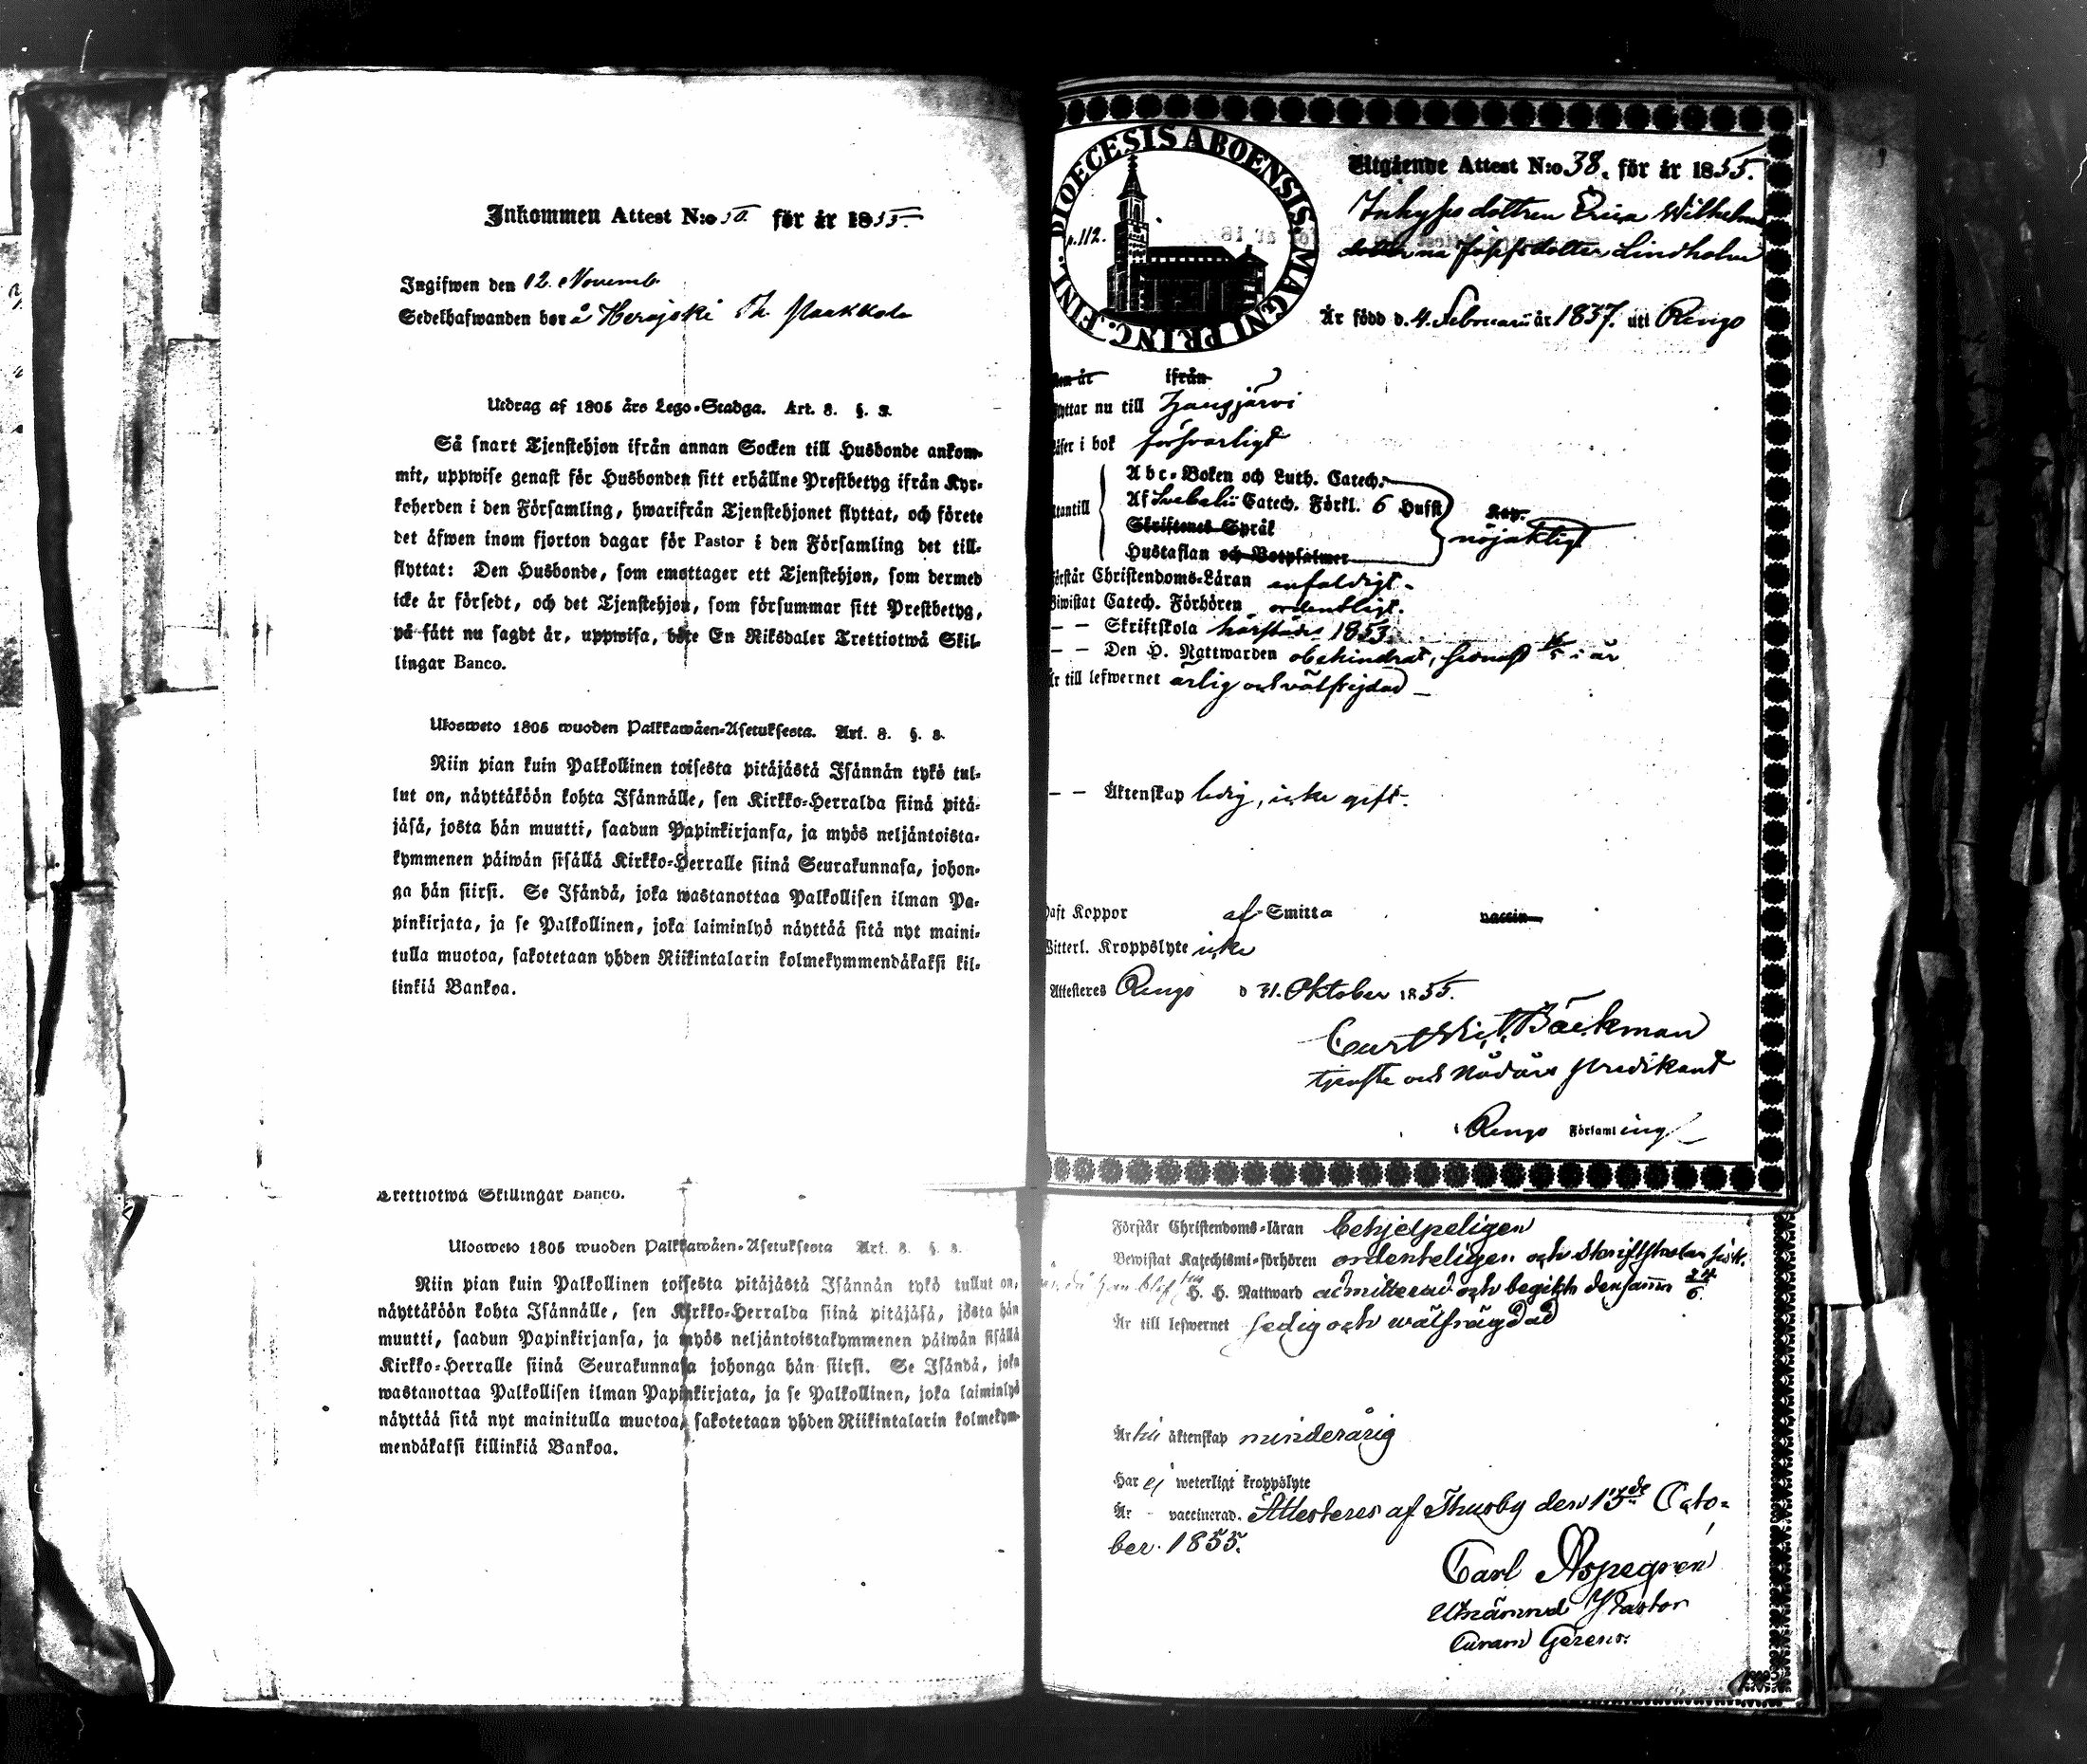 Inkommen Attest N:o 50. för år 1855.
Ingifwen den 12. Novemb.
Sedelhafwanden bor å Herajoki
Utdrag af 1805 års Lego-Stadga. Art. 8. §. 3.
Så snart Tjenstehjon ifrån annan Socken till Husbonde ankom-
mit, uppwise genast för Husbonden sitt erhållne Prestbetyg ifrån Kyr-
koherden i den Församling, hwarifrån Tjenstehjonet flyttat, och förete
det äfwen inom fjorton dagar för Pastor i den Församling det till-
flyttat: Den Husbonde, som emottager ett Tjenstehjon, som dermed
icke är försedt, och det Tjenstehjon, som försummar sitt Prestbetyg,
på sätt nu sagdt är, uppwisa, böte En Riksdaler Trettiotwå Skil-
lingar Banco.
Ulosweto 1805 wuoden Palkkawäen-Asetuksesta. Art. 8. §. 3.
Niin pian kuin Palkollinen toisesta pitäjästä Isännän tykö tul-
lut on, näyttäköön kohta Isännälle, sen Kirkko-Herralda siinä pitä-
jäsä, josta hän muutti, saadun Papinkirjansa, ja myös neljäntoista-
kymmenen päiwän sisällä Kirkko-Herralle siinä Seurakunnasa, johon-
ga hän siirsi. Se Isändä, joka wastanottaa Palkollisen ilman Pa-
pinkirjata, ja se Palkollinen, joka laiminlyö näyttää sitä nyt maini-
tulla muotoa, sakotetaan yhden Riikintalarin kolmekymmendäkaksi kil-
linkiä Bankoa.
Trettiotwå Skillingar Banco.
Ulosweto 1805 wuoden Palkkawäen-Asetuksesta Art. 8. §. 3.
Niin pian kuin Palkollinen toisesta pitäjästä Isännän tykö tullut on,
näyttäköön kohta Isännälle, sen Kirkko-Herralda siinä pitäjäsä, josta hän
muutti, saadun Papinkirjansa, ja myös neljäntoistakymmenen päiwän sisällä
Kirkko-Herralle siinä Seurakunnasa johonga hän siirsi. Se Isändä, joka
wastanottaa Palkollisen ilman Papinkirjata, ja se Palkollinen, joka laiminlyö
näyttää sitä nyt mainitulla muotoa, sakotetaan yhden Riikintalarin kolmekym-
mendäkaksi killinkiä Bankoa.
DIOECESIS ABOENSIS. MAGNI PRINC. FINL.
p. 112.
Utgående Attest N:o 38. för år 1855.
Inhyses dottren Erica Wilhelmi
na Josefsdotter Lindholm
Är född d. 4. Februarii år 1837. uti Rengo
den år ifrån
flyttar nu till Janakjärvi
Läser i bok försvarligt
Utantill
Abc-Boken och Luth. Catech.
Af Svebelii Catech. Förkl. 6 Hufst
Skriftenes Språk
Hustaflan och Botpsalmer
nöjaktigt
Förstår Christendoms-Läran enfaldigt.
Biwistat Catech. Förhören ordentligt.
— — Skriftskola härstädes 1853.
— — Den H. Nattwarden obehindrat, senast i år
Är till lefwernet ärlig och välfrejdad —
— — Äktenskap ledig, icke gift.
Haft Koppor af Smitta vaccin
Witterl. Kroppslyte icke
Attesteres Rengo d 31. Oktober 1855.
Curt Bäckman
tjenste och Nådårs predikant
i Rengo Församling
Förstår Christendoms-läran behjelpeligen
Bewistat Katechismi-förhören ordenteligen och Skriftskolan
H. H. Nattward admitterad och begikk densamma 24/6
Är till lefwernet sedig och wälfrägdad
Är äktenskap minderårig
Har ej weterligt kroppslyte
Är - vaccinerad. Attesteres af Thusby den 13de Octo-
ber. 1855.
Carl Aspegren
Utnämnd Pastor
Curam Gerens.